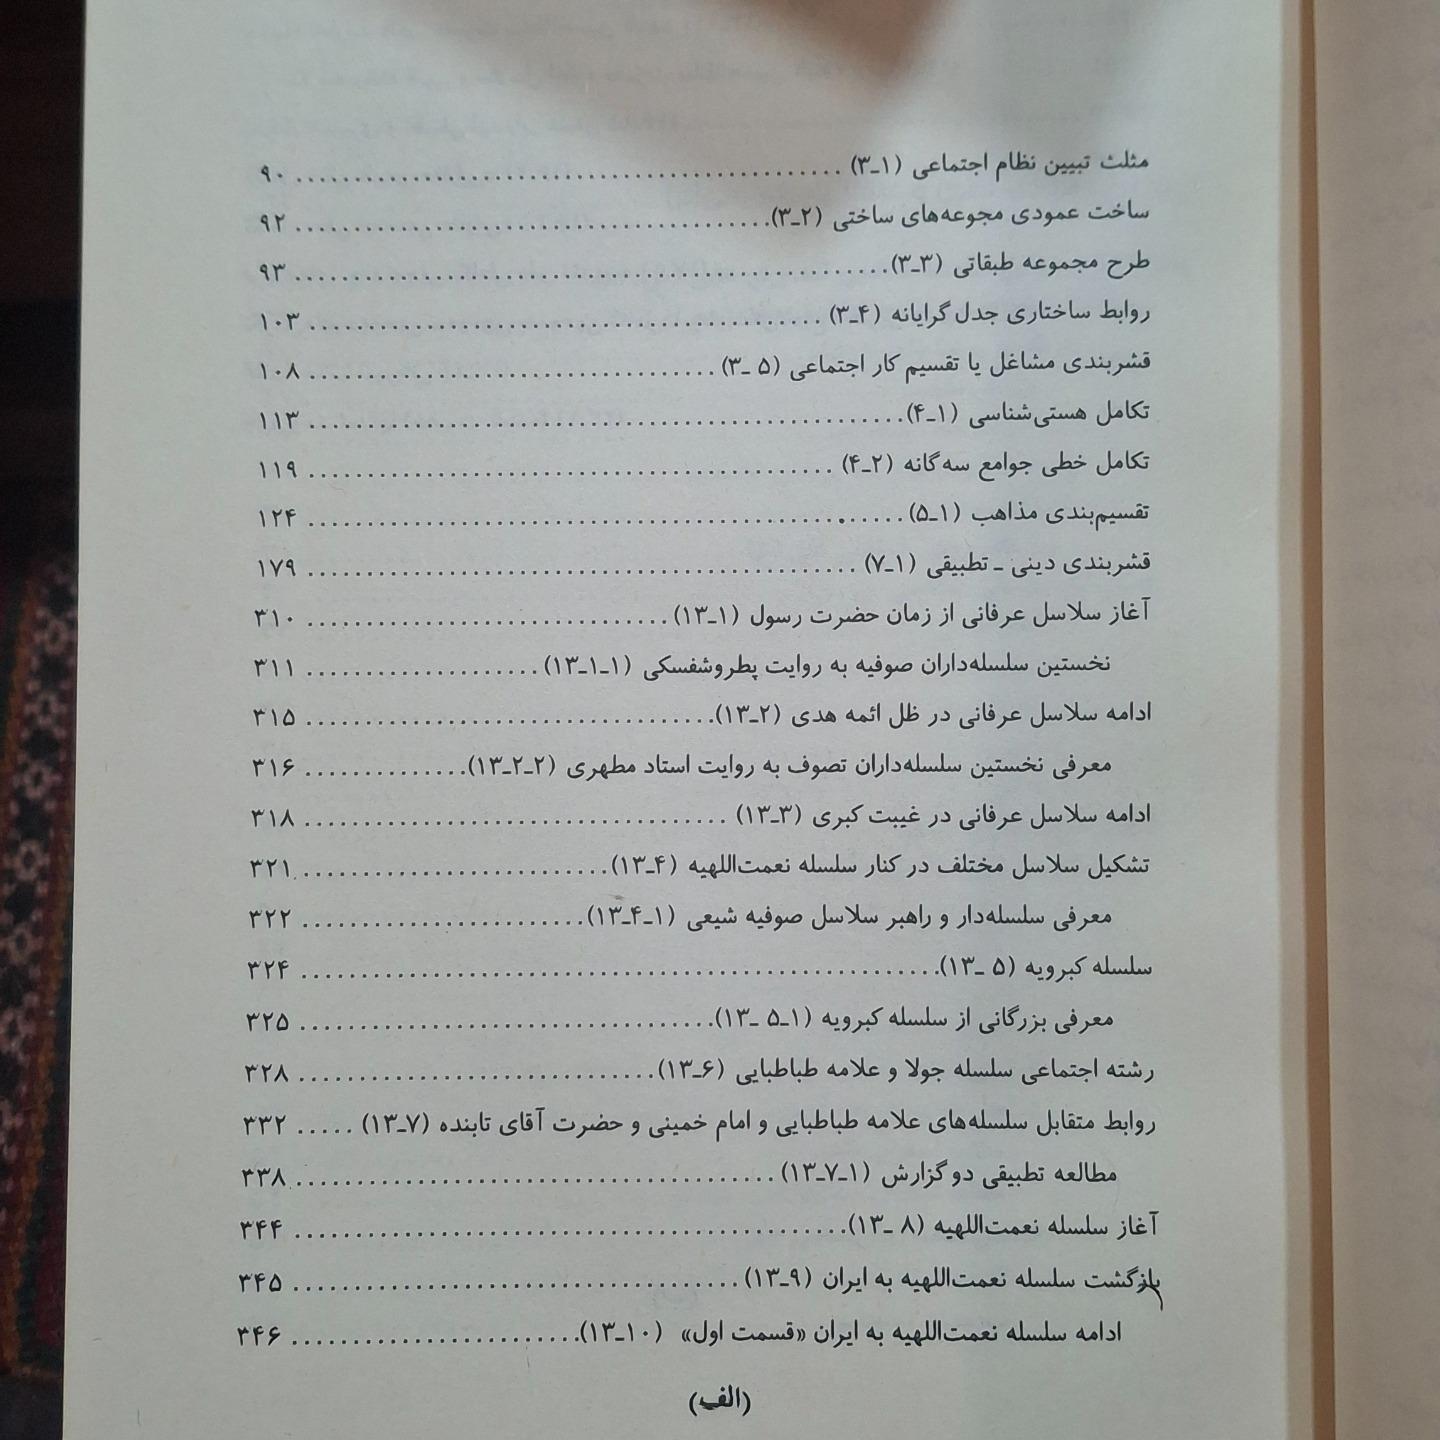 مثلث تبیین نظام اجتماعی (۱ـ۳) ........ ۹۰
ساخت عمودی مجوعه‌های ساختی (۲ـ۳) ........ ۹۲
طرح مجموعه طبقاتی (۳ـ۳) ........ ۹۳
روابط ساختاری جدل گرایانه (۴ـ۳) ........ ۱۰۳
قشربندی مشاغل یا تقسیم کار اجتماعی (۵ ـ۳) ........ ۱۰۸
تکامل هستی‌شناسی (۱ـ۴) ........ ۱۱۳
تکامل خطی جوامع سه‌گانه (۲ـ۴) ........ ۱۱۹
تقسیم‌بندی مذاهب (۱ـ۵) ........ ۱۲۴
قشربندی دینی ـ تطبیقی (۱ـ۷) ........ ۱۷۹
آغاز سلاسل عرفانی از زمان حضرت رسول (۱ـ۱۳) ........ ۳۱۰
نخستین سلسله‌داران صوفیه به روایت پطروشفسکی (۱ـ۱ـ۱۳) ........ ۳۱۱
ادامه سلاسل عرفانی در ظل ائمه هدی (۲ـ۱۳) ........ ۳۱۵
معرفی نخستین سلسله‌داران تصوف به روایت استاد مطهری (۲ـ۲ـ۱۳) ........ ۳۱۶
ادامه سلاسل عرفانی در غیبت کبری (۳ـ۱۳) ........ ۳۱۸
تشکیل سلاسل مختلف در کنار سلسله نعمت‌اللهیه (۴ـ۱۳) ........ ۳۲۱
معرفی سلسله‌دار و راهبر سلاسل صوفیه شیعی (۱ـ۴ـ۱۳) ........ ۳۲۲
سلسله کبرویه (۵ ـ۱۳) ........ ۳۲۴
معرفی بزرگانی از سلسله کبرویه (۱ـ۵ ـ۱۳) ........ ۳۲۵
رشته اجتماعی سلسله جولا و علامه طباطبایی (۶ـ۱۳) ........ ۳۲۸
روابط متقابل سلسله‌های علامه طباطبایی و امام خمینی و حضرت آقای تابنده (۷ـ۱۳) ..... ۳۳۲
مطالعه تطبیقی دو گزارش (۱ـ۷ـ۱۳) ........ ۳۳۸
آغاز سلسله نعمت‌اللهیه (۸ ـ۱۳) ........ ۳۴۴
بازگشت سلسله نعمت‌اللهیه به ایران (۹ـ۱۳) ........ ۳۴۵
ادامه سلسله نعمت‌اللهیه به ایران «قسمت اول» (۱۰ـ۱۳) ........ ۳۴۶
(الف)